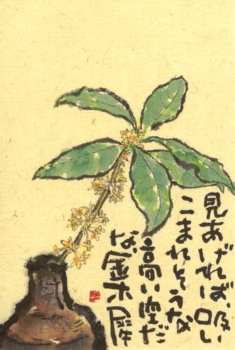 見あげれば、吸い
こまれそうな
高い空だ
な金木犀